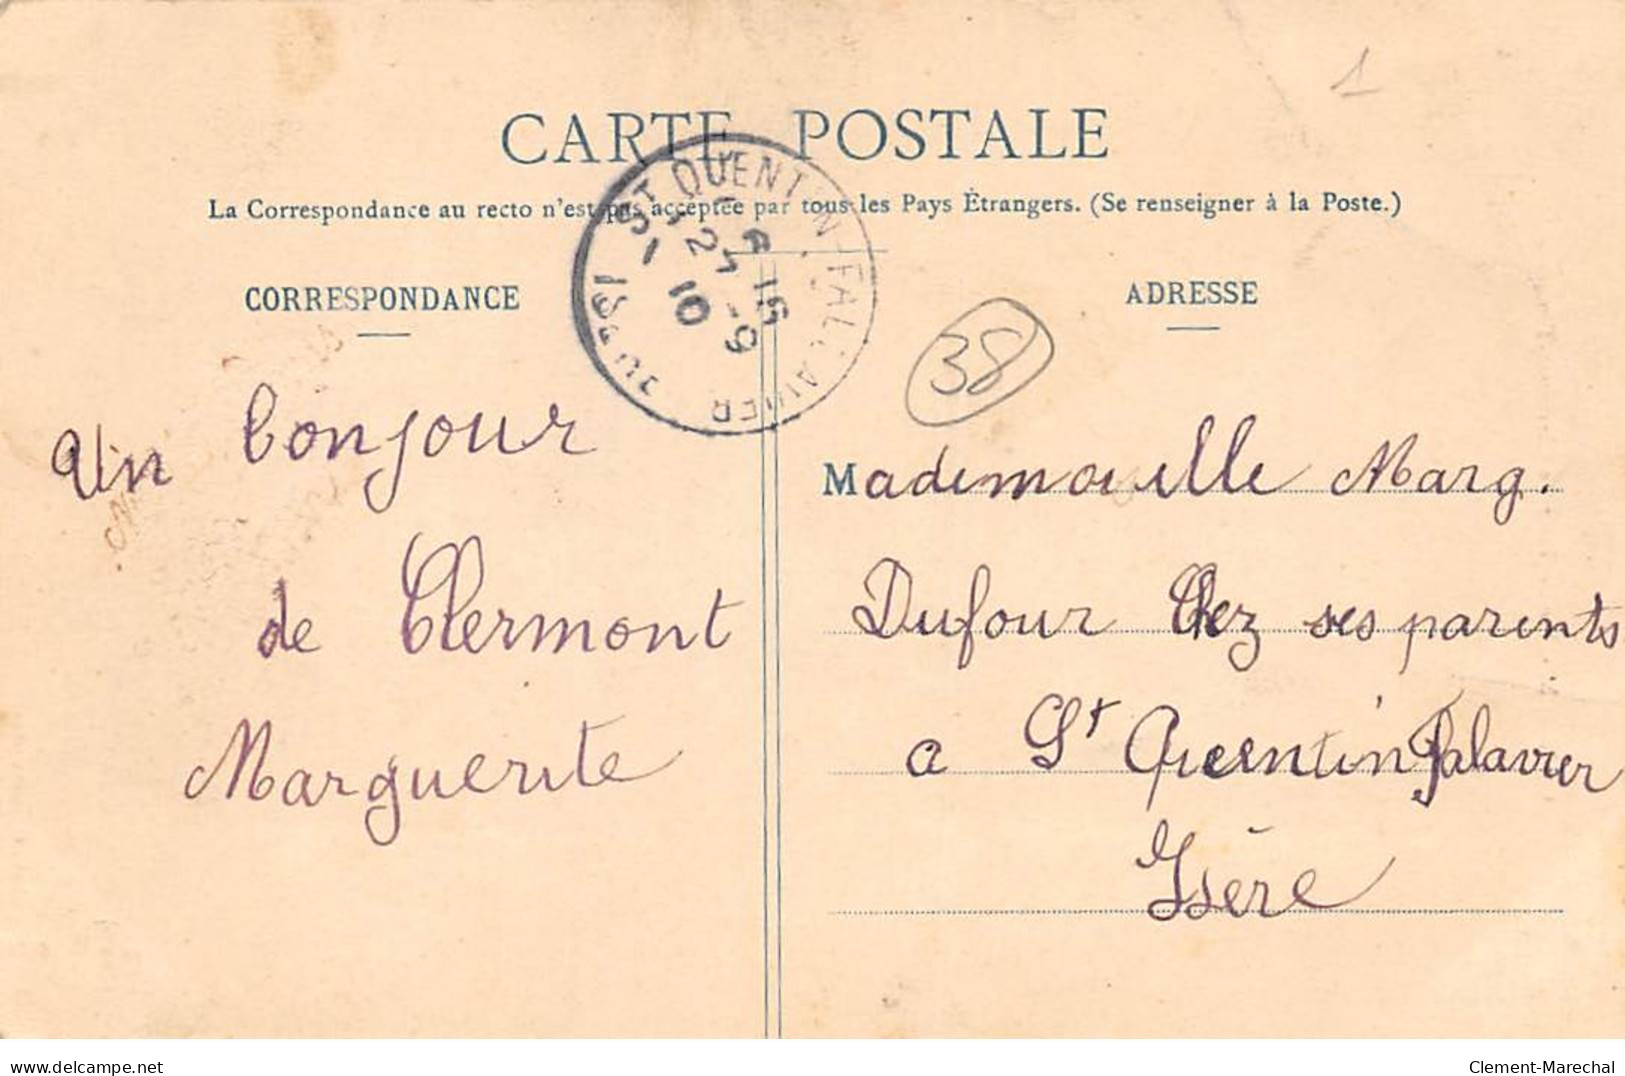 1
CARTE POSTALE
La Correspondance au recto n'est pas acceptée par tous les Pays Étrangers. (Se renseigner à la Poste.)
CORRESPONDANCE
ADRESSE
ST QUENTIN-FALLAVIER
ISÈRE
27 -9
10
38
Un bonjour
de Clermont
Marguerite
Mademoiselle Marg.
Dufour Chez ses parents
a St Quentin Falavier
Isère
delcampe.net
Clement-Marechal